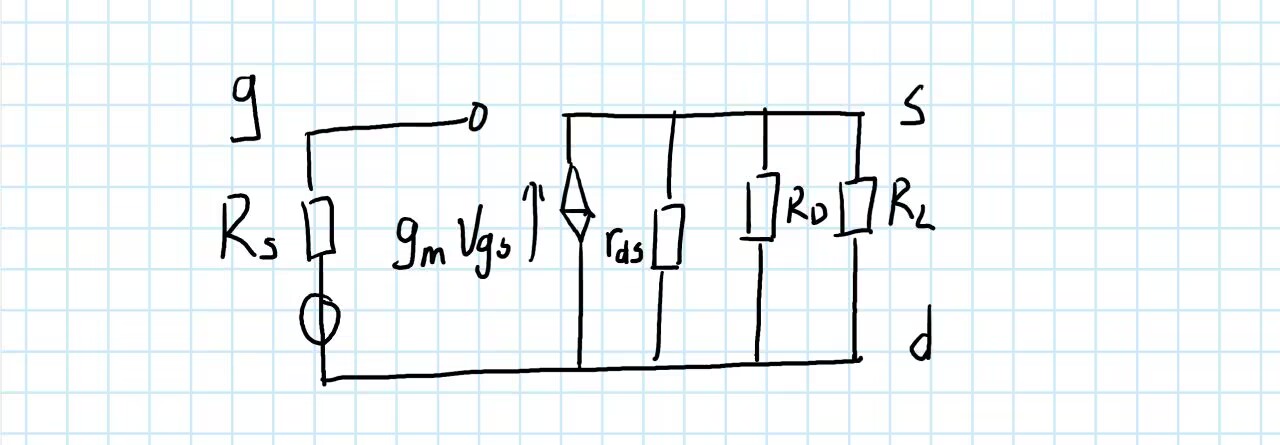 g
s
Rs
gm Vgs
rds
RD
RL
d